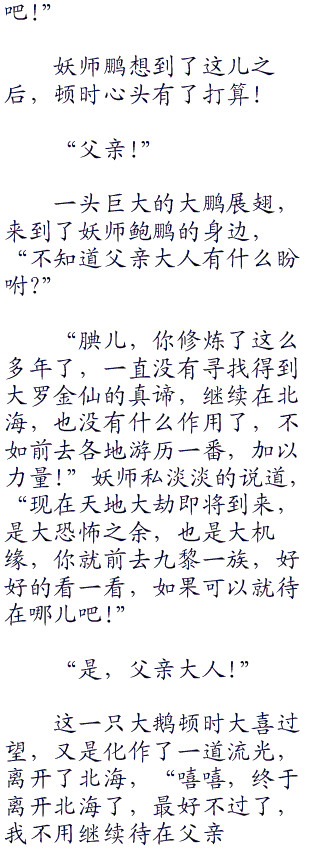 吧！”
妖师鹏想到了这儿之
后，顿时心头有了打算！
“父亲！”
一头巨大的大鹏展翅，
来到了妖师鲍鹏的身边，
“不知道父亲大人有什么盼
咐？”
“腆儿，你修炼了这么
多年了，一直没有寻找得到
大罗金仙的真谛，继续在北
海，也没有什么作用了，不
如前去各地游历一番，加以
力量！”妖师私淡淡的说道，
“现在天地大劫即将到来，
是大恐怖之余，也是大机
缘，你就前去九黎一族，好
好的看一看，如果可以就待
在哪儿吧！”
“是，父亲大人！”
这一只大鹅顿时大喜过
望，又是化作了一道流光，
离开了北海，“嘻嘻，终于
离开北海了，最好不过了，
我不用继续待在父亲